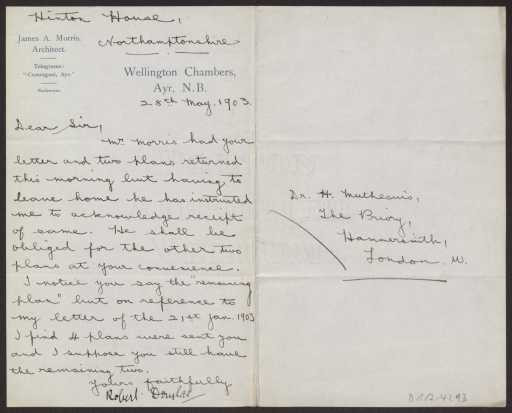 Hinton House,
Northamptonshire
James A. Morris,
Architect.
Telegrams:
Wellington Chambers,
Ayr, N.B.
28th May. 1903.
Dear Sir,
Mr. Morris had your
letter and two plans returned
this morning but having to
leave home he has instructed
me to acknowledge receipt
of same. He shall be
obliged for the other two
plans at your convenience.
I notice you say the "remaining
plan" but on reference to
my letter of the 21st Jan. 1903
I find 4 plans were sent you
and I suppose you still have
the remaining two.
Yours faithfully
Robert Douglas
Dr. H. Muthesius,
The Priory,
Hammersmith,
London. W.